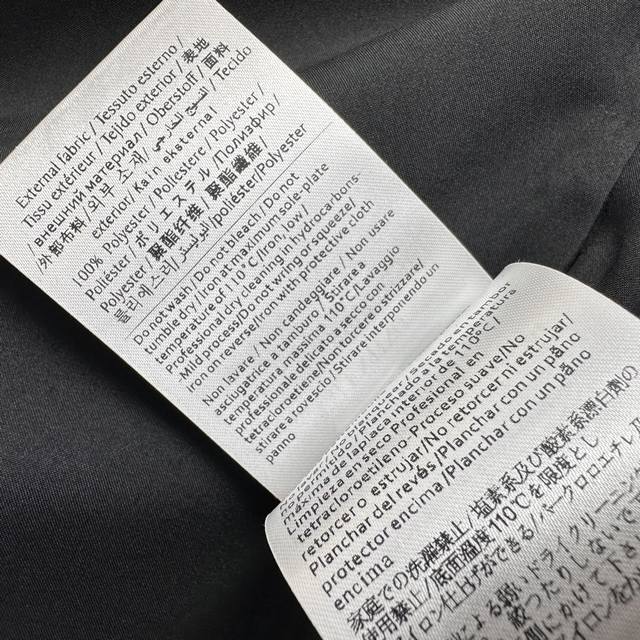 External fabric / Tessuto esterno /
Tissu extérieur / Tejido exterior / 表地
/ внешний материал / Oberstoff / 面料
/外部布料/ 외부 소재/ النسيج الخارجي / Tecido
exterior / Kain eksternal
100% Polyester / Poliestere / Polyester /
Poliéster / ポリエステル / Полиэфир /
Polyester / 聚酯纤维 / 聚酯纖維 /
폴리에스터 / البوليستر / poliéster/Polyester
Do not wash / Do not bleach / Do not
tumble dry / Iron at maximum sole-plate
temperature of 110°C / Iron low /
Professional dry-cleaning in hydrocarbons-
Mild process/Do not wring or squeeze/
iron on reverse/Iron with protective cloth
Non lavare / Non candeggiare / Non usare
asciugatrice a tamburo / Stirare a
temperatura massima 110°C/Lavaggio
professionale delicato a secco con
tetracloroetilene/Non torcere o strizzare/
Stirare a rovescio/Stirare interponendo un
panno
máxima de la placa interior de 110°C/
Limpieza en seco Profesional en
tetracloroetileno Proceso suave/No
retorcer o estrujar/No retorcer ni estrujar/
Planchar del revés/Planchar con un paño
protector encima / Planchar con un paño
encima
家庭での洗濯禁止/塩素系及び酸素系漂白剤の
使用禁止/底面温度110℃を限度とし
イロン仕上げができる/パークロロエチレン及
による弱いドライクリーニン
絞ったりしないで
側にかけて下さ